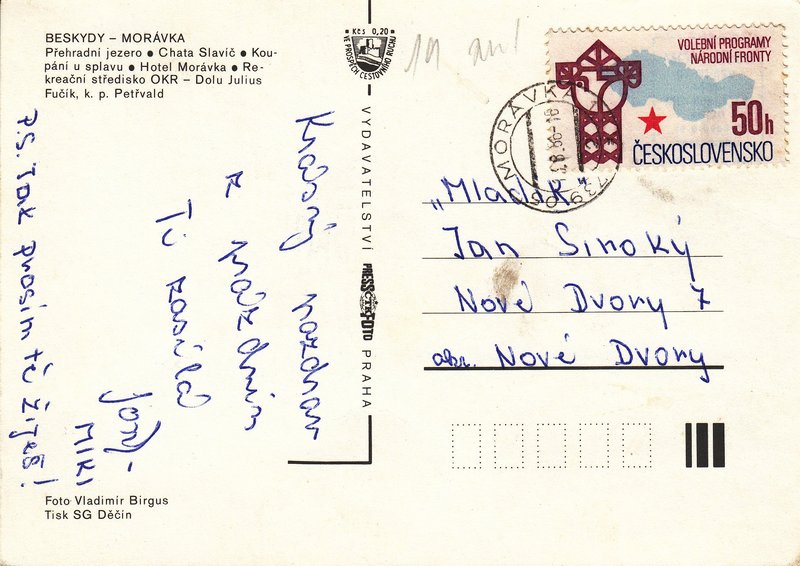 BESKYDY – MORÁVKA
Přehradní jezero ● Chata Slavíč ● Kou-
pání u splavu ● Hotel Morávka ● Re-
kreační středisko OKR – Dolu Julius
Fučík, k. p. Petřvald
Kčs 0,20
VE PROSPĚCH CESTOVNÍHO RUCHU
VOLEBNÍ PROGRAMY
NÁRODNÍ FRONTY
50h
ČESKOSLOVENSKO
MORÁVKA
VYDAVATELSTVÍ PRESSFOTO PRAHA
Krásný pozdrav
z prázdnin
Ti zasílá
MIKI
P.S. Tak prosím tě žiješ!
„Mladík“
Jan Široký
Nové Dvory 7
okr. Nové Dvory
Foto Vladimír Birgus
Tisk SG Děčín